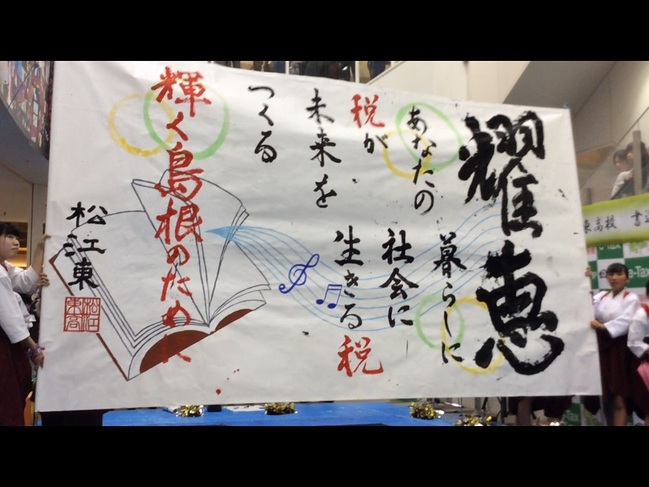 耀恵
あなたの
税が
未来を
つくる
暮らしに
社会に
生きる税
輝く島根のために
松江東
松江東高
東高校 書道
e-Tax